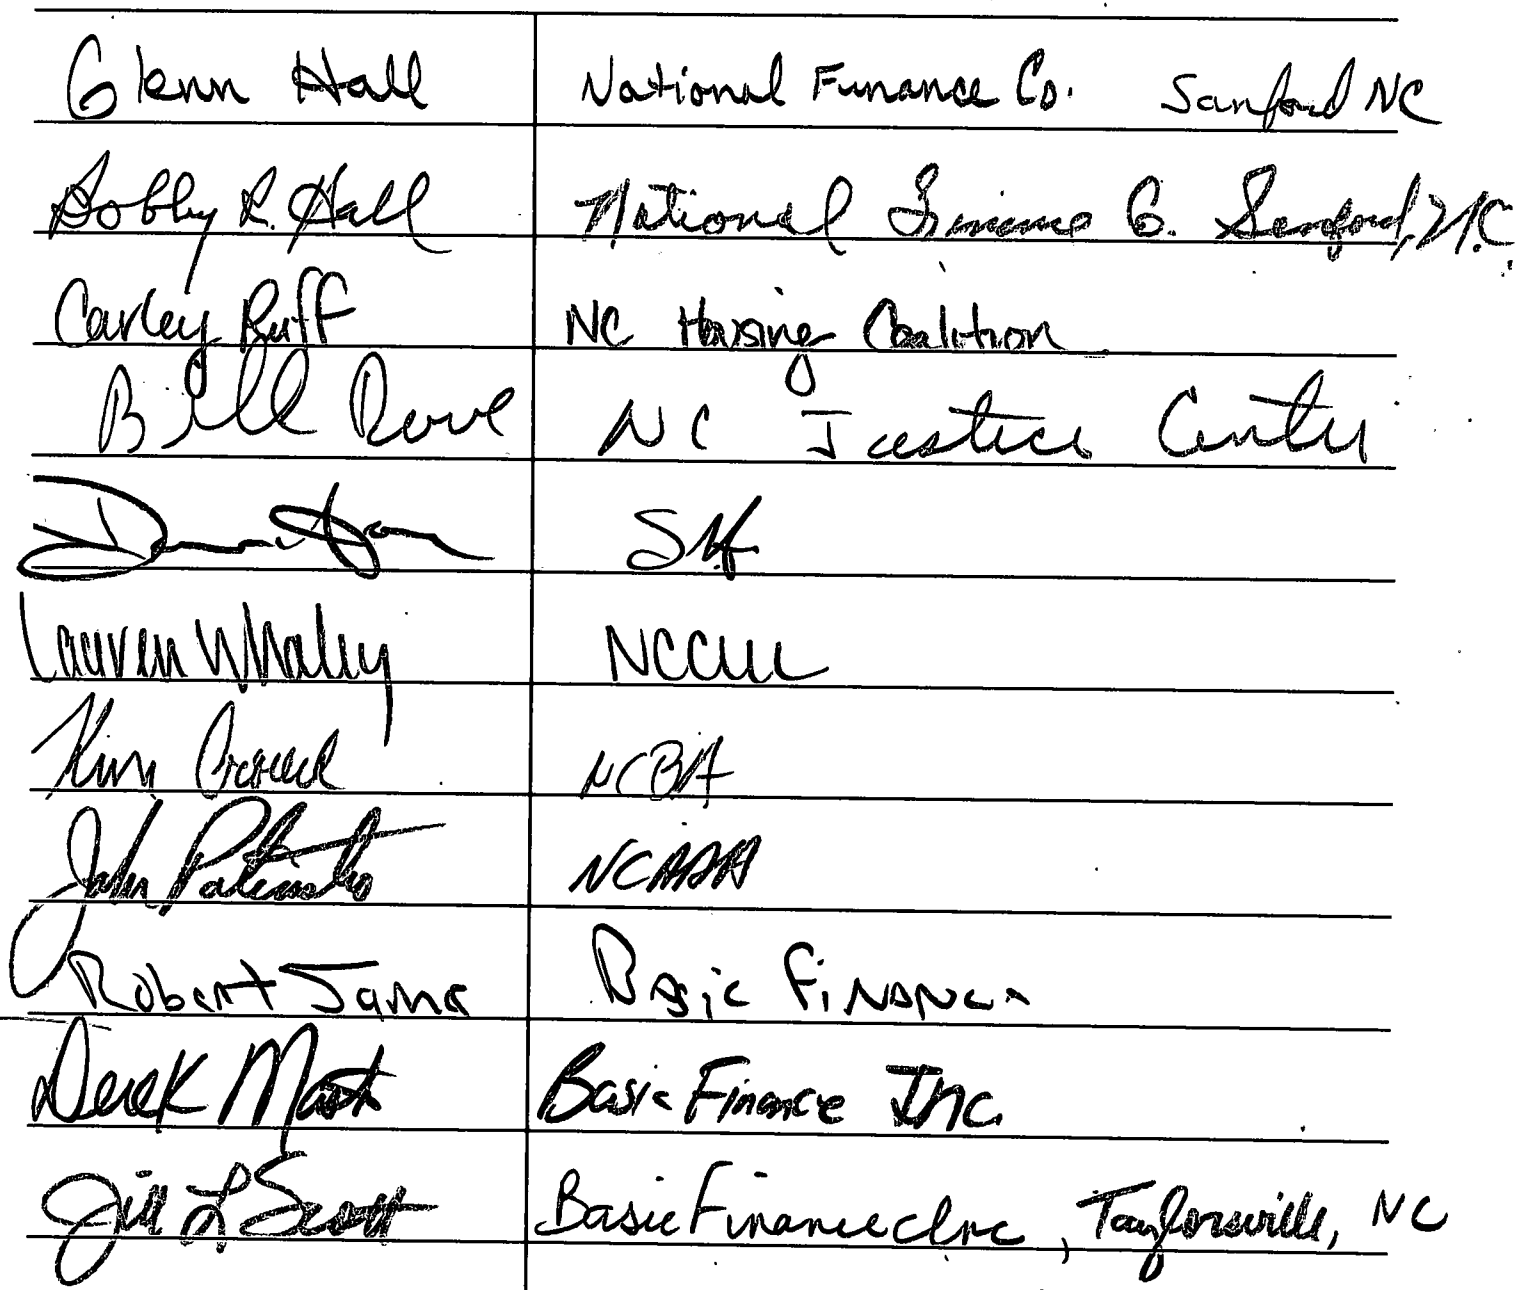 Glenn Hall National Finance Co. Sanford NC
Bobby R. Hall National Finance Co. Sanford, N.C.
Carley Ruff NC Housing Coalition
Bill Rowe NC Justice Center
Self
Lauren Whaley NCCUL
Kim NCBA
John NCAAA
Robert James Basic Finance
Derek Basic Finance Inc.
Jill L Scott Basic Finance Inc, Taylorsville, NC